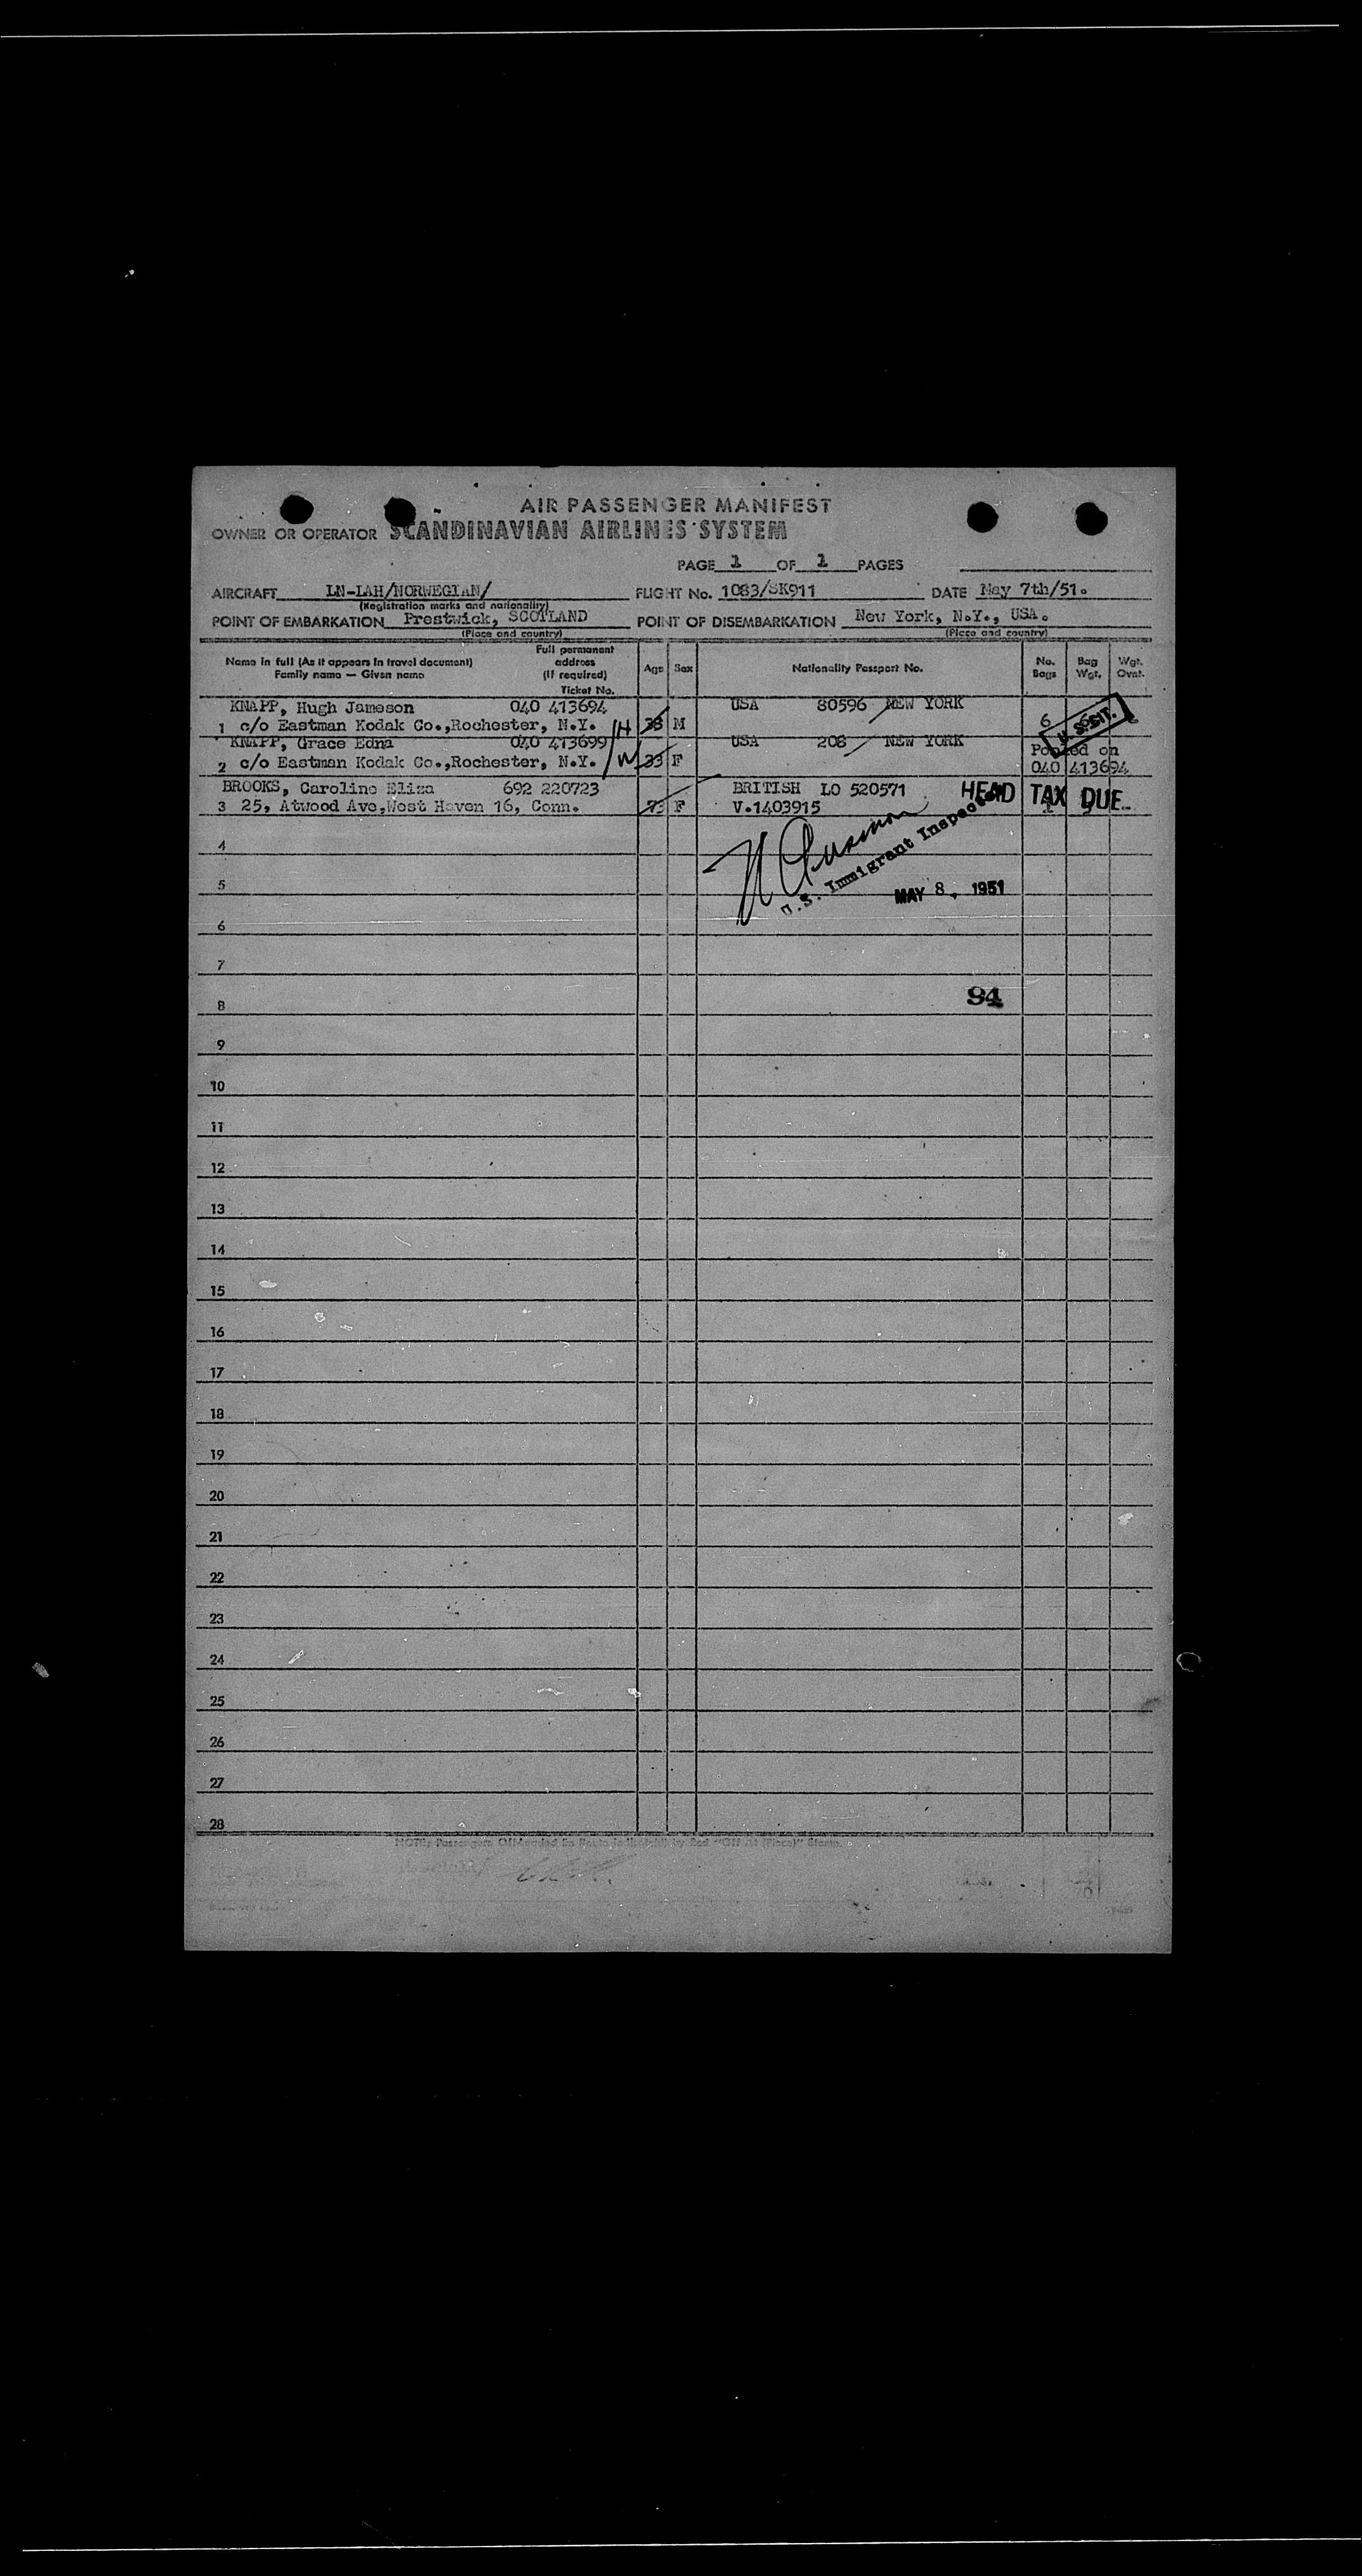 AIR PASSENGER MANIFEST
OWNER OR OPERATOR SCANDINAVIAN AIRLINES SYSTEM
PAGE 1 OF 1 PAGES
AIRCRAFT LN-LAH/NORWEGIAN/ FLIGHT No. 1083/SK911 DATE May 7th/51.
(Registration marks and nationality)
POINT OF EMBARKATION Prestwick, SCOTLAND POINT OF DISEMBARKATION New York, N.Y., USA.
(Place and country) (Place and country)
Name in full (As it appears in travel document) Family name — Given name Full permanent address (If required) Ticket No. Age Sex Nationality Passport No. No. Bags Bag Wgt. Wgt. Ovnt.
KNAPP, Hugh Jameson 040 413694 USA 80596 NEW YORK
1 c/o Eastman Kodak Co.,Rochester, N.Y. H 38 M 6
KNAPP, Grace Edna 040 413699 USA 208 NEW YORK Pooled on
2 c/o Eastman Kodak Co.,Rochester, N.Y. W 33 F 040 413694
BROOKS, Caroline Eliza 692 220723 BRITISH LO 520571 HEAD TAX DUE
3 25, Atwood Ave,West Haven 16, Conn. 73 F V.1403915
U. S. CIT.
U.S. Immigrant Inspector
MAY 8, 1951
4
5
6
7
94
8
9
10
11
12
13
14
15
16
17
18
19
20
21
22
23
24
25
26
27
28